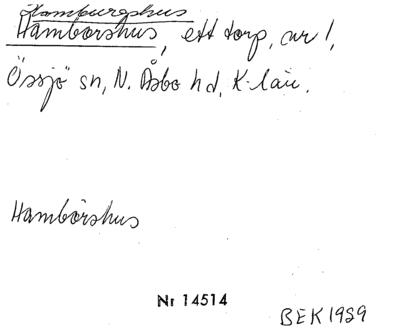 Hamburgshus
Hambørshus, ett torp, avr!,
Össjö sn, N. Åsbo hd, K-län.
Hambörshus
Nr 14514
BEK 1929